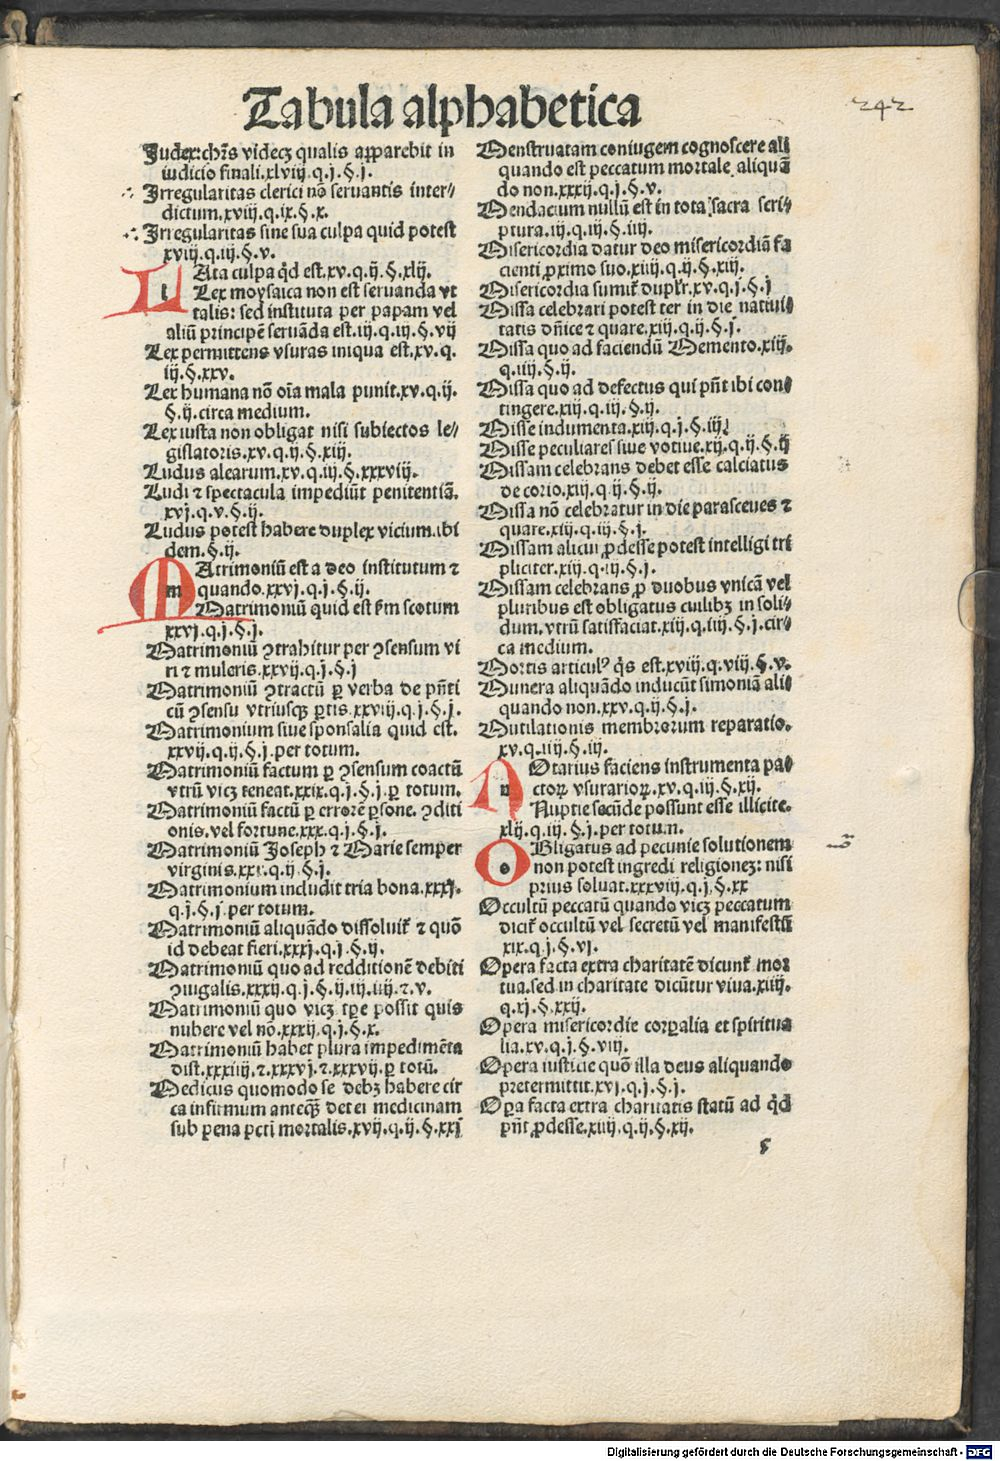 Tabula alphabetica
242
Judex: chr̄s videcꝫ qualis apparebit in
iudicio finali.xlviij.q.j.§.j.
Irregularitas clerici nō seruantis inter⸗
dictum.xviij.q.ix.§.x.
Irregularitas sine sua culpa quid potest
xviij.q.iij.§.v.
LAta culpa qd̄ est.xv.q.ij.§.xlij.
Lex moysaica non est seruanda vt
talis: sed instituta per papam vel
aliū principē seruāda est.iij.q.iij.§.vij
Lex permittens vsuras iniqua est.xv.q.
iij.§.xxv.
Lex humana nō oīa mala punit.xv.q.ij.
§.ij.circa medium.
Lex iusta non obligat nisi subiectos le⸗
gislatoris.xv.q.ij.§.xiij.
Ludus alearum.xv.q.iij.§.xxxviij.
Ludi ⁊ spectacula impediūt penitentiā.
xvj.q.v.§.ij.
Ludus potest habere duplex vicium.ibi
dem.§.ij.
MAtrimoniū est a deo institutum ⁊
quando.xxvj.q.j.§.ij.
Matrimoniū quid est ẜm scotum
xxvj.q.j.§.j.
Matrimoniū ꝯtrahitur per ꝯsensum vi
ri ⁊ muleris.xxvij.q.j.§.j
Matrimoniū ꝯtractū ꝑ verba de pn̄ti
cū ꝯsensu vtriusqꝫ ꝑtis.xxviij.q.j.§.j.
Matrimonium siue sponsalia quid est.
xxvij.q.ij.§.j.per totum.
Matrimoniū factum ꝑ ꝯsensum coactū
vtrū vicꝫ teneat.xxix.q.j.§.j.ꝑ totum.
Matrimoniū factū ꝑ errorē ꝑsone. ꝯditi
onis.vel fortune.xxx.q.j.§.j.
Matrimoniū Joseph ⁊ Marie semper
virginis.xxv.q.ij.§.j.
Matrimonium includit tria bona.xxxj.
q.j.§.j.per totum.
Matrimoniū aliquādo dissoluit᷑ ⁊ quō
id debeat fieri.xxxj.q.j.§.ij.
Matrimoniū quo ad redditionē debiti
ꝯiugalis.xxxij.q.j.§.ij.iij.iiij.⁊.v.
Matrimoniū quo vicꝫ tꝑe possit quis
nubere vel nō.xxxij.q.j.§.x.
Matrimoniū habet plura impedimēta
dist.xxxiiij.⁊.xxxvj.⁊.xxxvij.ꝑ totū.
Medicus quomodo se debꝫ habere cir
ca infirmum anteqꝫ̄ det ei medicinam
sub pena pcti mortalis.xvij.q.ij.§.xxj
Menstruatam coniugem cognoscere ali
quando est peccatum mortale aliquā
do non.xxxij.q.j.§.v.
Mendacium nullū est in tota sacra scri⸗
ptura.iij.q.iij.§.iiij.
Misericordia datur deo misericordiā fa
cienti ꝓximo suo.xiiij.q.ij.§.xiij.
Misericordia sumit᷑ duplr̄.xv.q.j.§.j
Missa celebrari potest ter in die natiui⸗
tatis dn̄ice ⁊ quare.xiij.q.ij.§.j.
Missa quo ad faciendū Memento.xiij.
q.iiij.§.ij.
Missa quo ad defectus qui pn̄t ibi con⸗
tingere.xiij.q.iij.§.ij.
Misse indumenta.xiij.q.j.§.iij.
Misse peculiares siue votiue.xij.q.ij.§.ij
Missam celebrans debet esse calciatus
de corio.xiij.q.ij.§.ij.
Missa nō celebratur in die parasceues ⁊
quare.xiij.q.iij.§.j.
Missam alicui ꝓdesse potest intelligi tri
pliciter.xiij.q.iij.§.j.
Missam celebrans ꝓ duobus vnicā vel
pluribus est obligatus cuilibꝫ in soli⸗
dum.vtrū satisfaciat.xiij.q.iiij.§.j.cir⸗
ca medium.
Mortis articulꝰ qͥs est.xviij.q.viij.§.v.
Munera aliquādo inducūt simoniā ali⸗
quando non.xxv.q.ij.§.j.
Mutilationis membrorum reparatio.
xv.q.iiij.§.iij.
NOtarius faciens instrumenta pa⸗
ctoꝝ vsurarioꝝ.xv.q.iij.§.xij.
Nuptie secūde possunt esse illicite.
xlij.q.iij.§.j.per totum.
OBligatus ad pecunie solutionem
non potest ingredi religionez: nisi
prius soluat.xxxviij.q.j.§.xx
Occultū peccatū quando vicꝫ peccatum
dicit᷑ occultū vel secretū vel manifestū
xix.q.j.§.vj.
Opera facta extra charitatē dicunt᷑ mor
tua.sed in charitate dicūtur viua.xiiij.
q.xj.§.xxij.
Opera misericordie corꝑalia et spiritua
lia.xv.q.j.§.viij.
Opera iusticie quō illa deus aliquando
pretermittit.xvj.q.j.§.j.
Oꝑa facta extra charitatis statū ad qd̄
pn̄t ꝓdesse.xiiij.q.ij.§.xij.
s
Digitalisierung gefördert durch die Deutsche Forschungsgemeinschaft - DFG